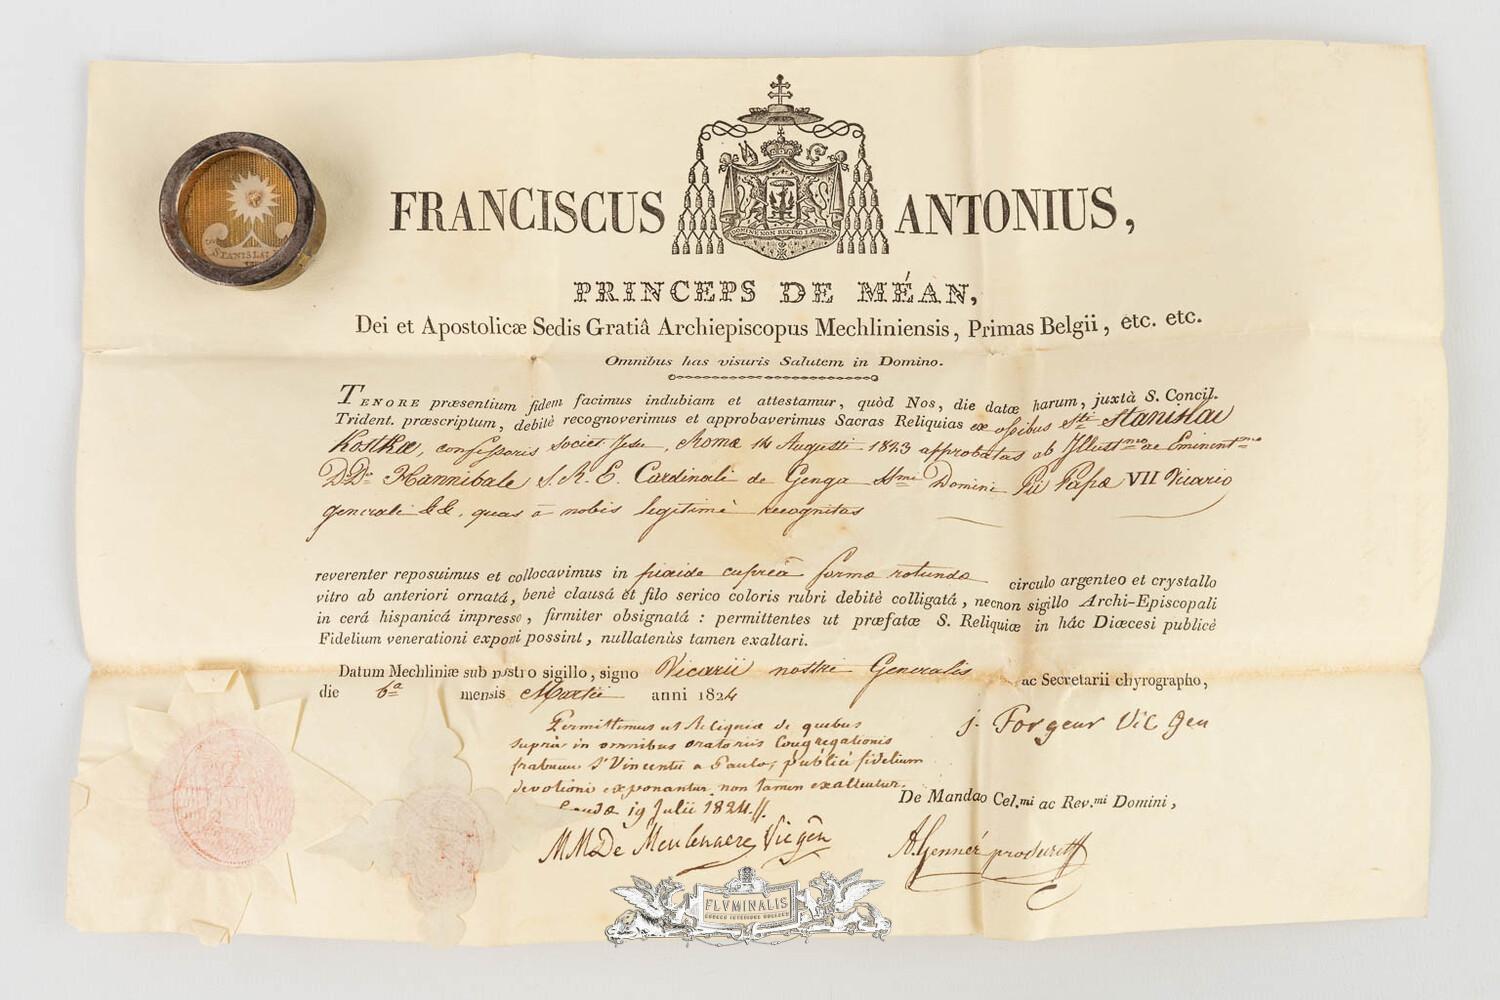 FRANCISCUS ANTONIUS,
DOMINE NON RECUSO LABOREM
PRINCEPS DE MÉAN,
Dei et Apostolicæ Sedis Gratiâ Archiepiscopus Mechliniensis, Primas Belgii, etc. etc.
Omnibus has visuris Salutem in Domino.
TENORE præsentium fidem facimus indubiam et attestamur, quòd Nos, die datæ harum, juxtà S. Concil.
Trident. præscriptum, debitè recognoverimus et approbaverimus Sacras Reliquias ex ossibus Sti Stanislai
Kostkæ, confessoris societ. Jesu, Romæ 14 Augusti 1823 approbatas ab Illustmo ac Eminentmo
D.Do Hannibale S.R.E. Cardinali de Genga SSmi Domini Pii Papæ VII Vicario
generali &&. quas à nobis legitimè recognitas
reverenter reposuimus et collocavimus in pixide cupreâ formæ rotundæ circulo argenteo et crystallo
vitro ab anteriori ornatá, benè clausá et filo serico coloris rubri debitè colligatá, necnon sigillo Archi-Episcopali
in cerá hispanicá impresso, firmiter obsignatá: permittentes ut præfatæ S. Reliquiæ in hác Diœcesi publicè
Fidelium venerationi exponi possint, nullatenùs tamen exaltari.
Datum Mechliniæ sub nostro sigillo, signo Vicarii nostri Generalis ac Secretarii chyrographo,
die 6a mensis Martii anni 1824
J. Forgeur Vic Gen
Permittimus ut Reliquiæ de quibus
suprà in omnibus oratoriis Congregationis
fratrum Sti Vincentii a Paulo, publicè fidelium
devotioni exponantur, non tamen exaltentur.
19 Julii 1824.
MM De Meulenaere Vic gên
De Mandao Cel.mi ac Rev.mi Domini,
STANISLAI
FLVMINALIS